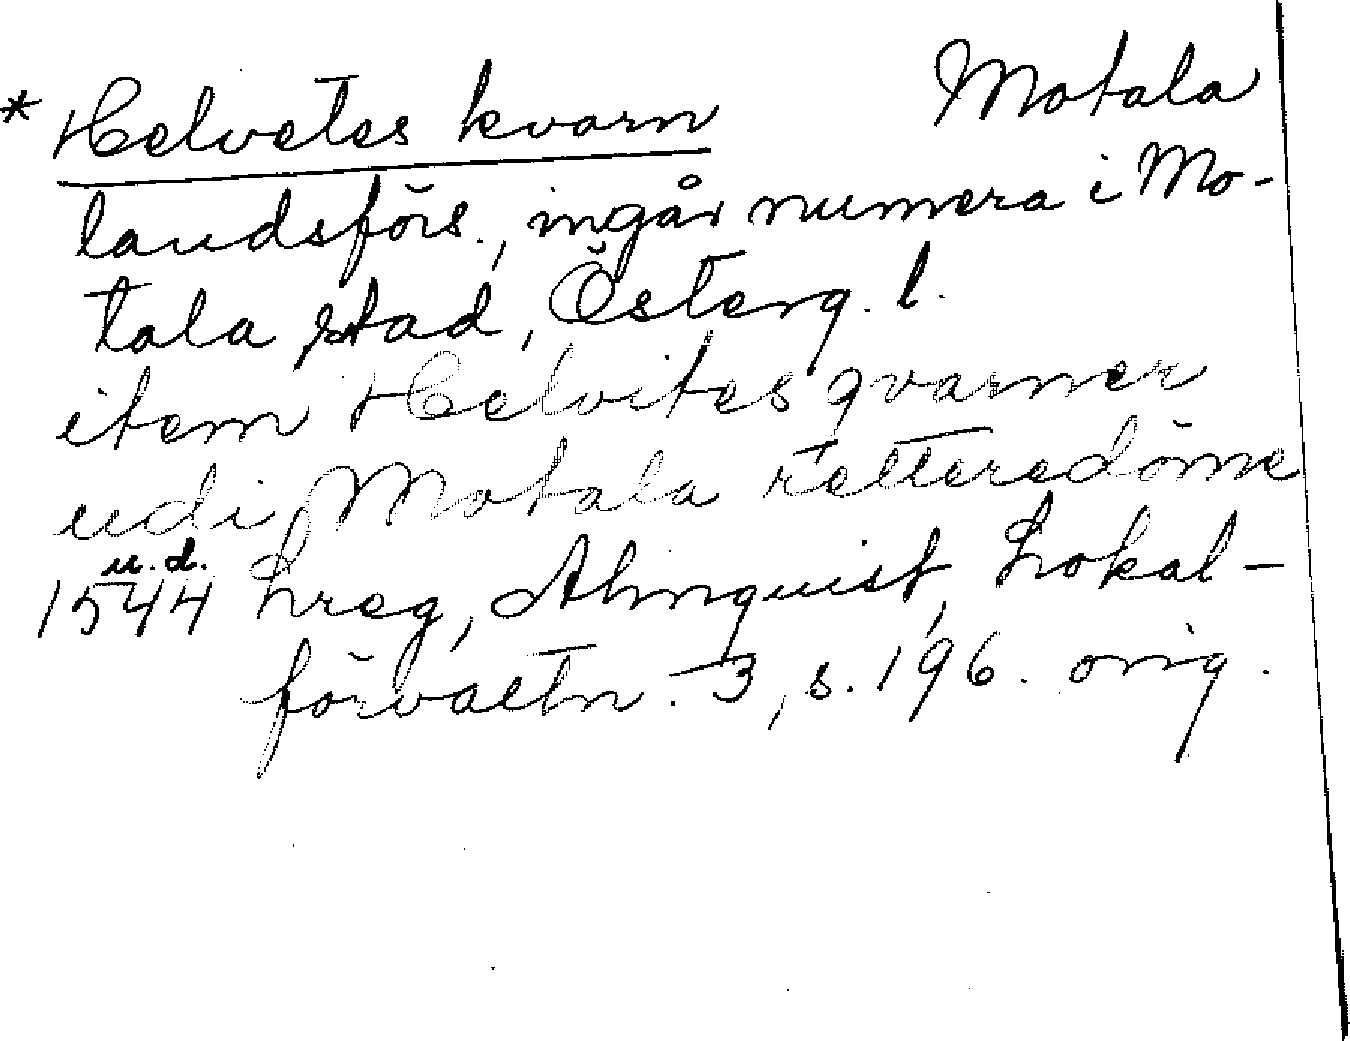 * Helvetes kvarn Motala
landsförs., ingår numera i Mo-
tala stad, Österg. l.
item Helvites qvarner
udi Motala retteredöme
u. d.
1544 Lreg, Almquist, Lokal-
förvaltn. 3, s. 196. orig.